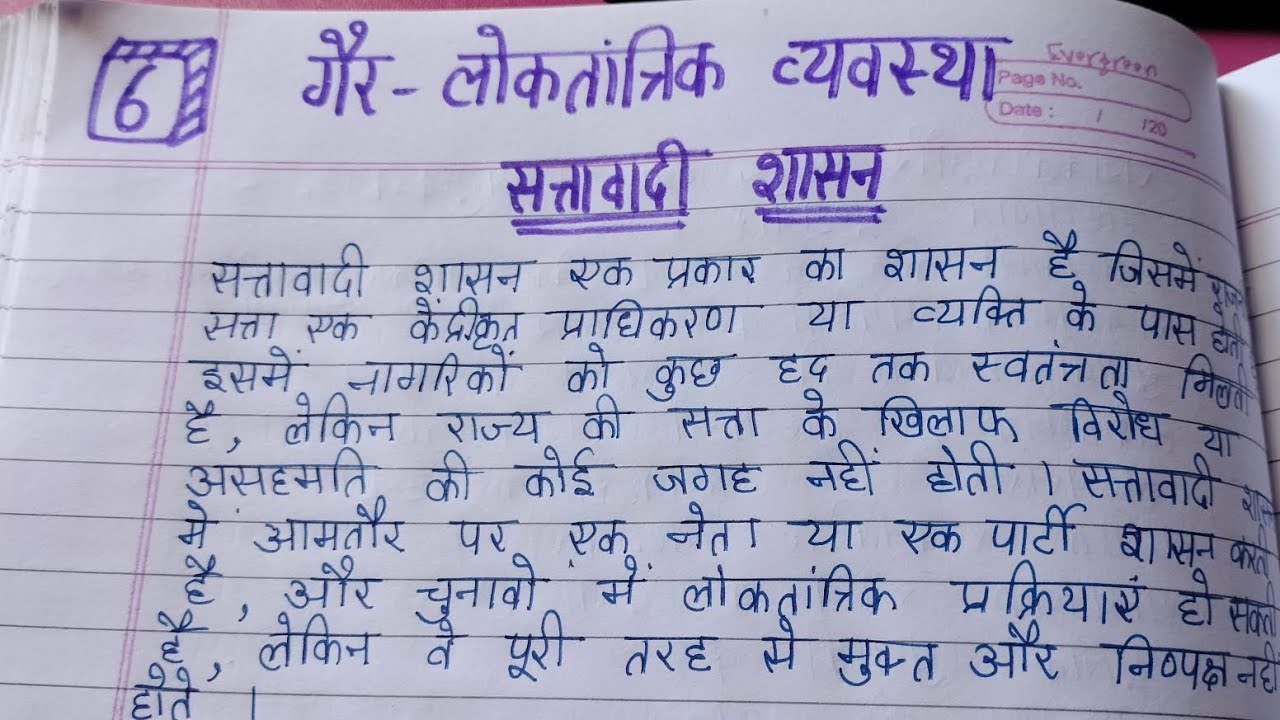 6
गैर - लोकतांत्रिक व्यवस्था
Evergreen
Page No.
Date : / /20
सत्तावादी शासन
सत्तावादी शासन एक प्रकार का शासन है जिसमें
सत्ता एक केंद्रीकृत प्राधिकरण या व्यक्ति के पास होती
इसमें नागरिकों को कुछ हद तक स्वतंत्रता मिलती
है, लेकिन राज्य की सत्ता के खिलाफ विरोध या
असहमति की कोई जगह नहीं होती । सत्तावादी
में आमतौर पर एक नेता या एक पार्टी शासन करती
है, और चुनावो में लोकतांत्रिक प्रक्रियाएं हो सकती
है, लेकिन वे पूरी तरह से मुक्त और निष्पक्ष नहीं
होते ।